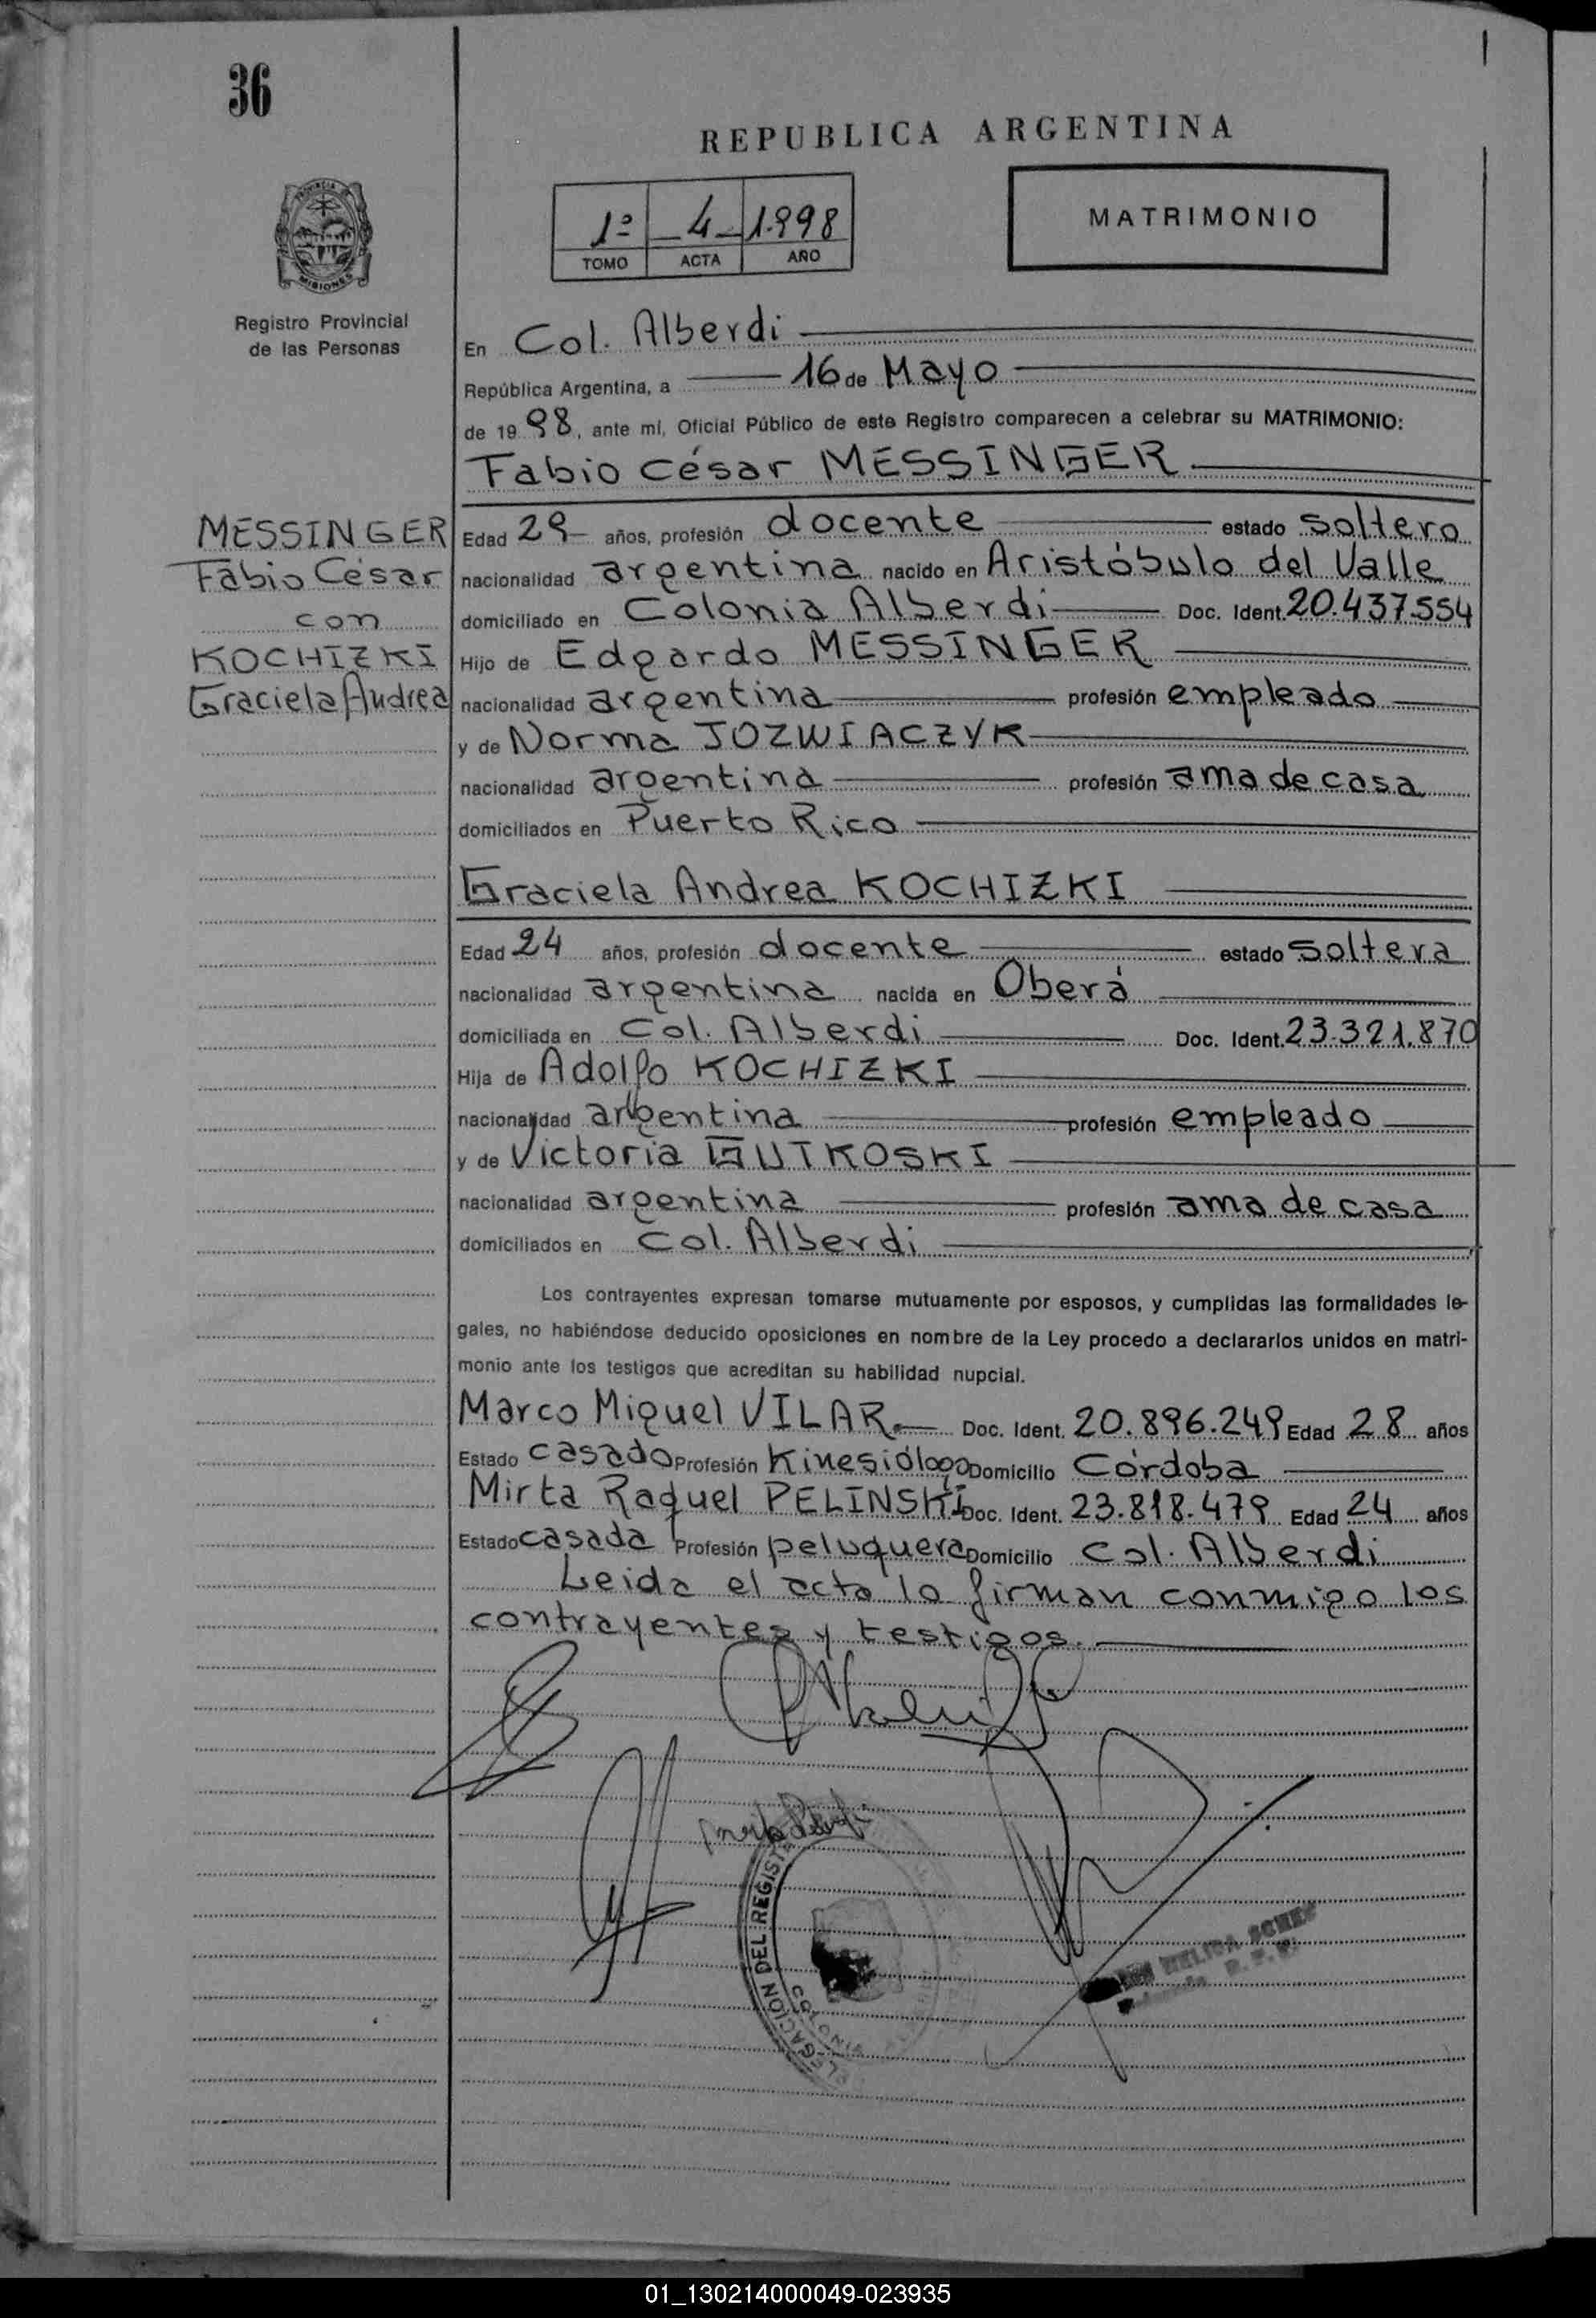 36
REPUBLICA ARGENTINA
PROVINCIA DE
MISIONES
Registro Provincial
de las Personas
1º -4- 1.998
TOMO ACTA AÑO
MATRIMONIO
En Col. Alberdi
República Argentina, a 16 de Mayo
de 1998, ante mí, Oficial Público de este Registro comparecen a celebrar su MATRIMONIO:
Fabio César MESSINGER
MESSINGER
Fabio César
con
KOCHIZKI
Graciela Andrea
Edad 29 años, profesión docente estado soltero
nacionalidad argentina nacido en Aristóbulo del Valle
domiciliado en Colonia Alberdi Doc. Ident. 20.437.554
Hijo de Edgardo MESSINGER
nacionalidad argentina profesión empleado
y de Norma JOZWIACZYK
nacionalidad argentina profesión ama de casa
domiciliados en Puerto Rico
Graciela Andrea KOCHIZKI
Edad 24 años, profesión docente estado soltera
nacionalidad argentina nacida en Oberá
domiciliada en Col. Alberdi Doc. Ident. 23.321.870
Hija de Adolfo KOCHIZKI
nacionalidad argentina profesión empleado
y de Victoria GUTKOSKI
nacionalidad argentina profesión ama de casa
domiciliados en Col. Alberdi
Los contrayentes expresan tomarse mutuamente por esposos, y cumplidas las formalidades le-
gales, no habiéndose deducido oposiciones en nombre de la Ley procedo a declararlos unidos en matri-
monio ante los testigos que acreditan su habilidad nupcial.
Marco Miguel VILAR.- Doc. Ident. 20.896.249 Edad 28 años
Estado casado Profesión Kinesiólogo Domicilio Córdoba
Mirta Raquel PELINSKI Doc. Ident. 23.818.479 Edad 24 años
Estado casada Profesión peluquera Domicilio Col. Alberdi
Leida el acta la firman conmigo los
contrayentes y testigos.
DELEGACION DEL REGISTRO
01_130214000049-023935